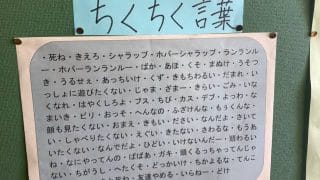 ちくちく言葉
・死ね・きえろ・シャラップ・ホバーシャラップ・ランランル
ー・ホバーランランルー・ばか・あほ・くそ・まぬけ・うそつ
き・うるせぇ・あっちいけ・くず・きもちわるい・だまれ・い
っしょに遊びたくない・じゃま・ざまー・きらい・ごみ・いな
くなれ・はやくしろよ・ブス・ちび・カス・デブ・よっわ・な
まいき・ビリ・おっそ・へんなの・ふざけんな・もぅくんな・
顔も見たくない・おまえ・きもい・ださい・なんだよ・さいて
い・しゃべりたくない・えぐい・きたない・さわるな・もうあ
いたくない・なんでだよ・ひどい・いけないんだー・頭わる
い・なにやってんの・ばばあ・ガキ・頭くるっちゃってんじゃ
ない・ちがうし・へたくそ・どっかいけ・ちかよるな・てんこ
友達やめる・いらねー・どけ